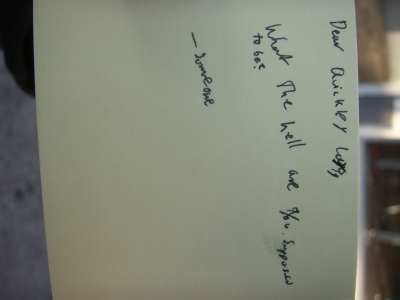 Dear Quickly
What the hell are you supposed
to be?
— Someone